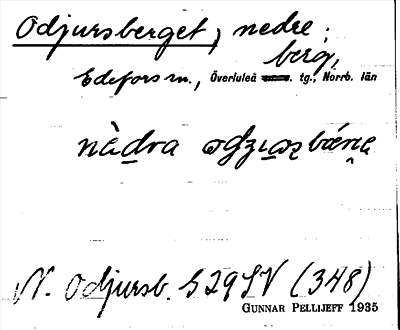 Odjursberget, nedre;
berg,
Edefors sn., Överluleå tg., Norrb. län
nàdra
N. Odjursb. S29SV (348)
GUNNAR PELLIJEFF 1935